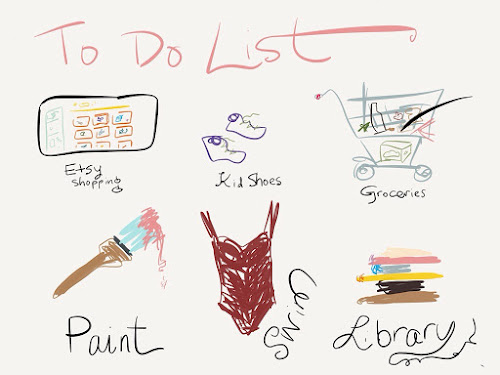 To Do List
Etsy
shopping
Kid Shoes
Groceries
Paint
Swim
Library